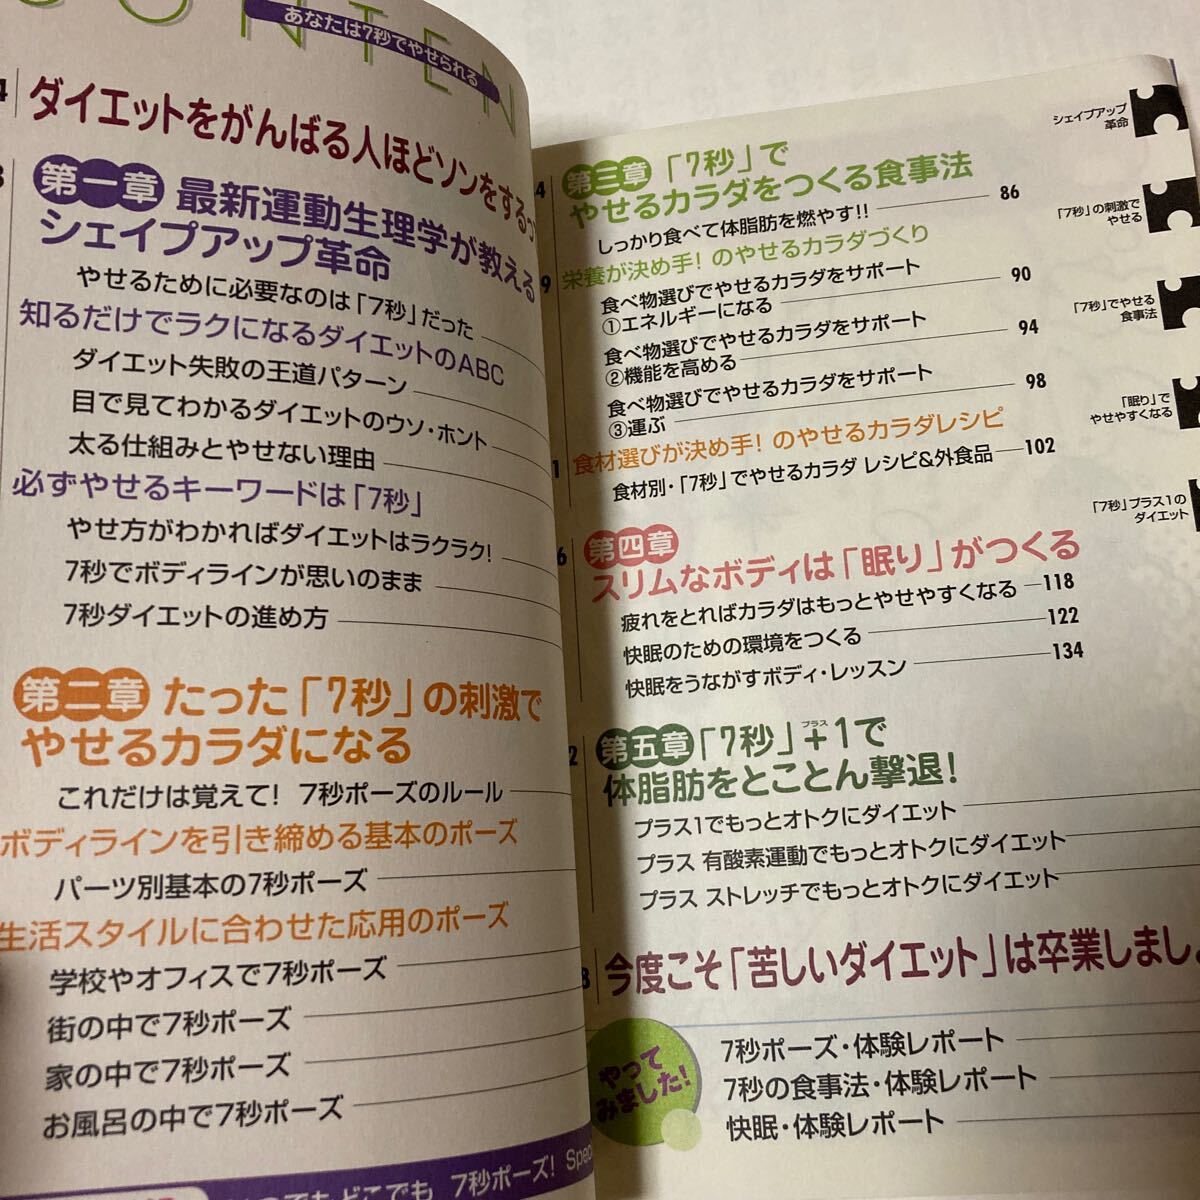 CONTEN
あなたは7秒でやせられる
4
ダイエットをがんばる人ほどソンをする
第一章 最新運動生理学が教える
シェイプアップ革命
やせるために必要なのは「7秒」だった
知るだけでラクになるダイエットのABC
ダイエット失敗の王道パターン
目で見てわかるダイエットのウソ・ホント
太る仕組みとやせない理由
必ずやせるキーワードは「7秒」
やせ方がわかればダイエットはラクラク!
7秒でボディラインが思いのまま
7秒ダイエットの進め方
第二章 たった「7秒」の刺激で
やせるカラダになる
これだけは覚えて! 7秒ポーズのルール
ボディラインを引き締める基本のポーズ
パーツ別基本の7秒ポーズ
生活スタイルに合わせた応用のポーズ
学校やオフィスで7秒ポーズ
街の中で7秒ポーズ
家の中で7秒ポーズ
お風呂の中で7秒ポーズ
でもどこでも 7秒ポーズ! Spec
第三章 「7秒」で
やせるカラダをつくる食事法
しっかり食べて体脂肪を燃やす!! 86
栄養が決め手! のやせるカラダづくり
食べ物選びでやせるカラダをサポート
①エネルギーになる 90
食べ物選びでやせるカラダをサポート
②機能を高める 94
食べ物選びでやせるカラダをサポート
③運ぶ 98
食材選びが決め手! のやせるカラダレシピ
食材別・「7秒」でやせるカラダ レシピ&外食品 102
第四章
スリムなボディは「眠り」がつくる
疲れをとればカラダはもっとやせやすくなる 118
快眠のための環境をつくる 122
快眠をうながすボディ・レッスン 134
第五章 「7秒」+1で
プラス
体脂肪をとことん撃退!
プラス1でもっとオトクにダイエット
プラス 有酸素運動でもっとオトクにダイエット
プラス ストレッチでもっとオトクにダイエット
今度こそ「苦しいダイエット」は卒業しまし
やって
みました!
7秒ポーズ・体験レポート
7秒の食事法・体験レポート
快眠・体験レポート
シェイプアップ
革命
「7秒」の刺激で
やせる
「7秒」でやせる
食事法
「眠り」で
やせやすくなる
「7秒」プラス1の
ダイエット